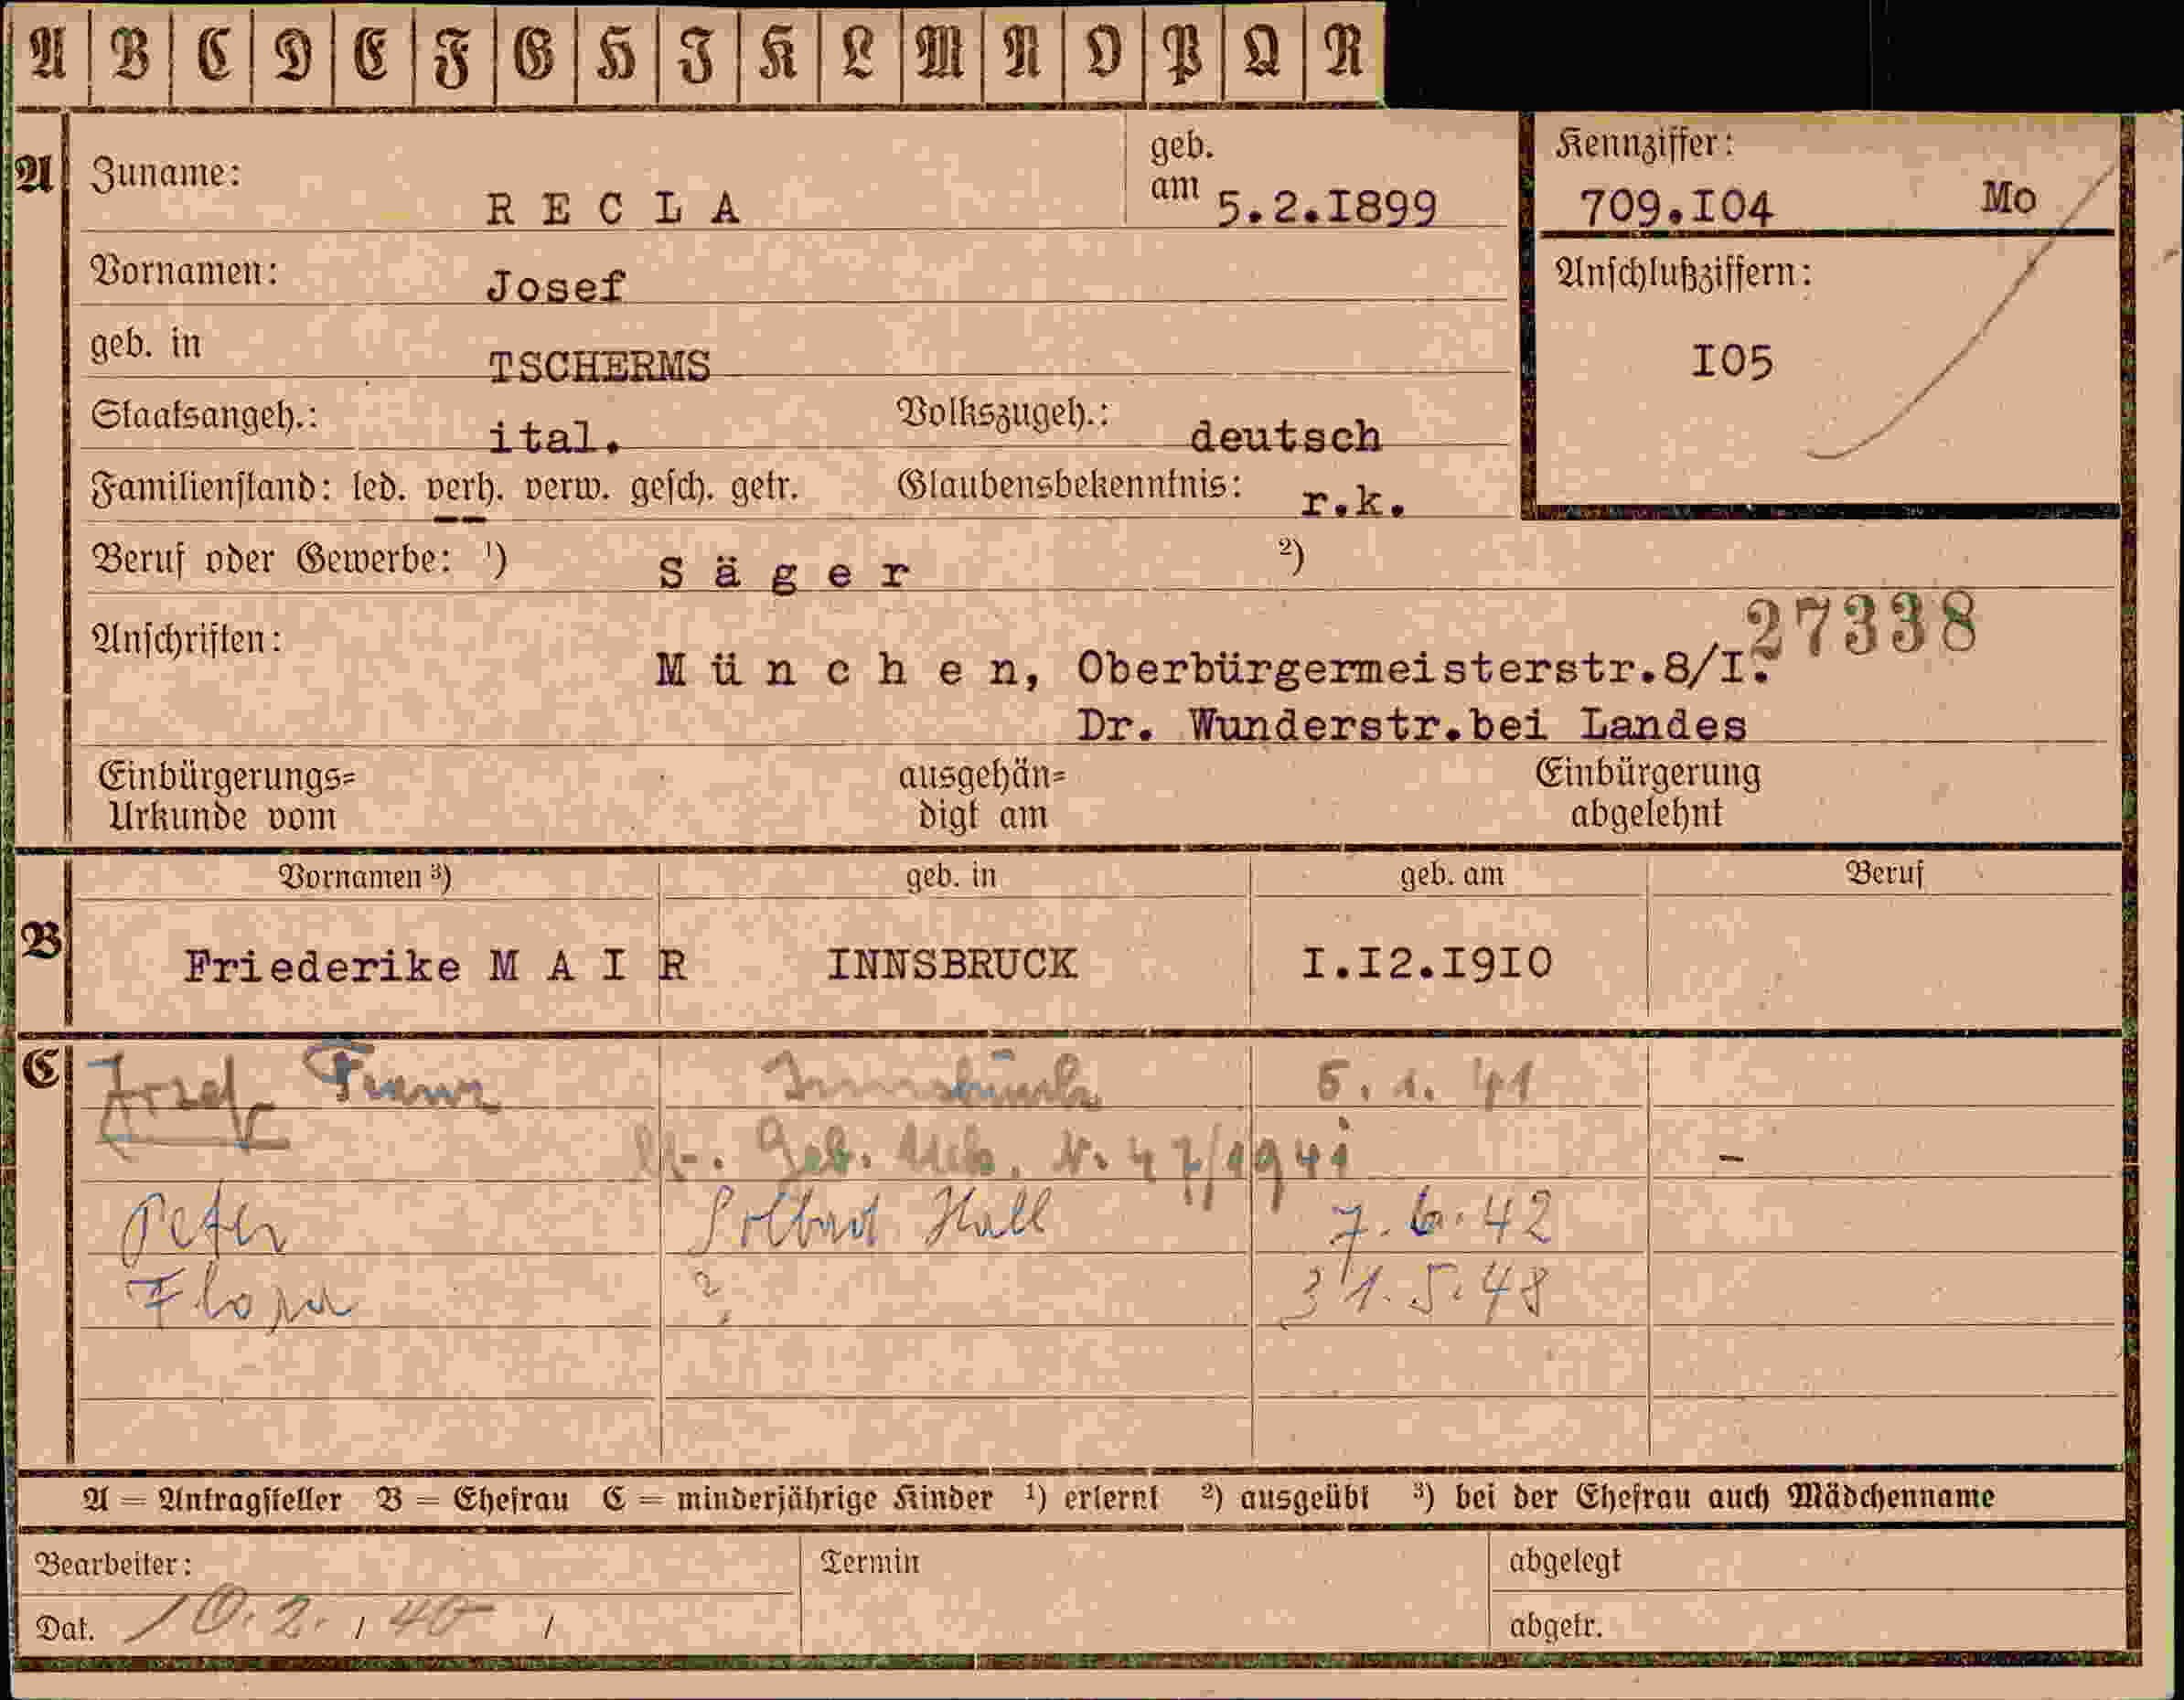 A B C D E F G H I K L M N O P Q R
A Zuname: RECLA geb. am 5.2.I899 Kennziffer: 709.I04 Mo
Vornamen: Josef Anschlußziffern:
geb. in TSCHERMS I05
Staatsangeh.: ital. Volkszugeh.: deutsch
Familienstand: led. verh. verw. gesch. getr. Glaubensbekenntnis: r.k.
Beruf oder Gewerbe: ¹) Säger ²)
27338
Anschriften: München, Oberbürgermeisterstr.8/I.
Dr. Wunderstr.bei Landes
Einbürgerungs= ausgehän= Einbürgerung
Urkunde vom digt am abgelehnt
Vornamen ³) geb. in geb. am Beruf
B Friederike MAIR INNSBRUCK I.I2.I9I0
C Josef Franz Innsbruck 5. 1. 41
Geb. N. 47/1941 –
Peter Solbad Hall 7. 6. 42
? 31. 5. 48
A = Antragsteller B = Ehefrau C = minderjährige Kinder ¹) erlernt ²) ausgeübt ³) bei der Ehefrau auch Mädchenname
Bearbeiter: Termin abgelegt
Dat. 10. 2. / 40 / abgetr.